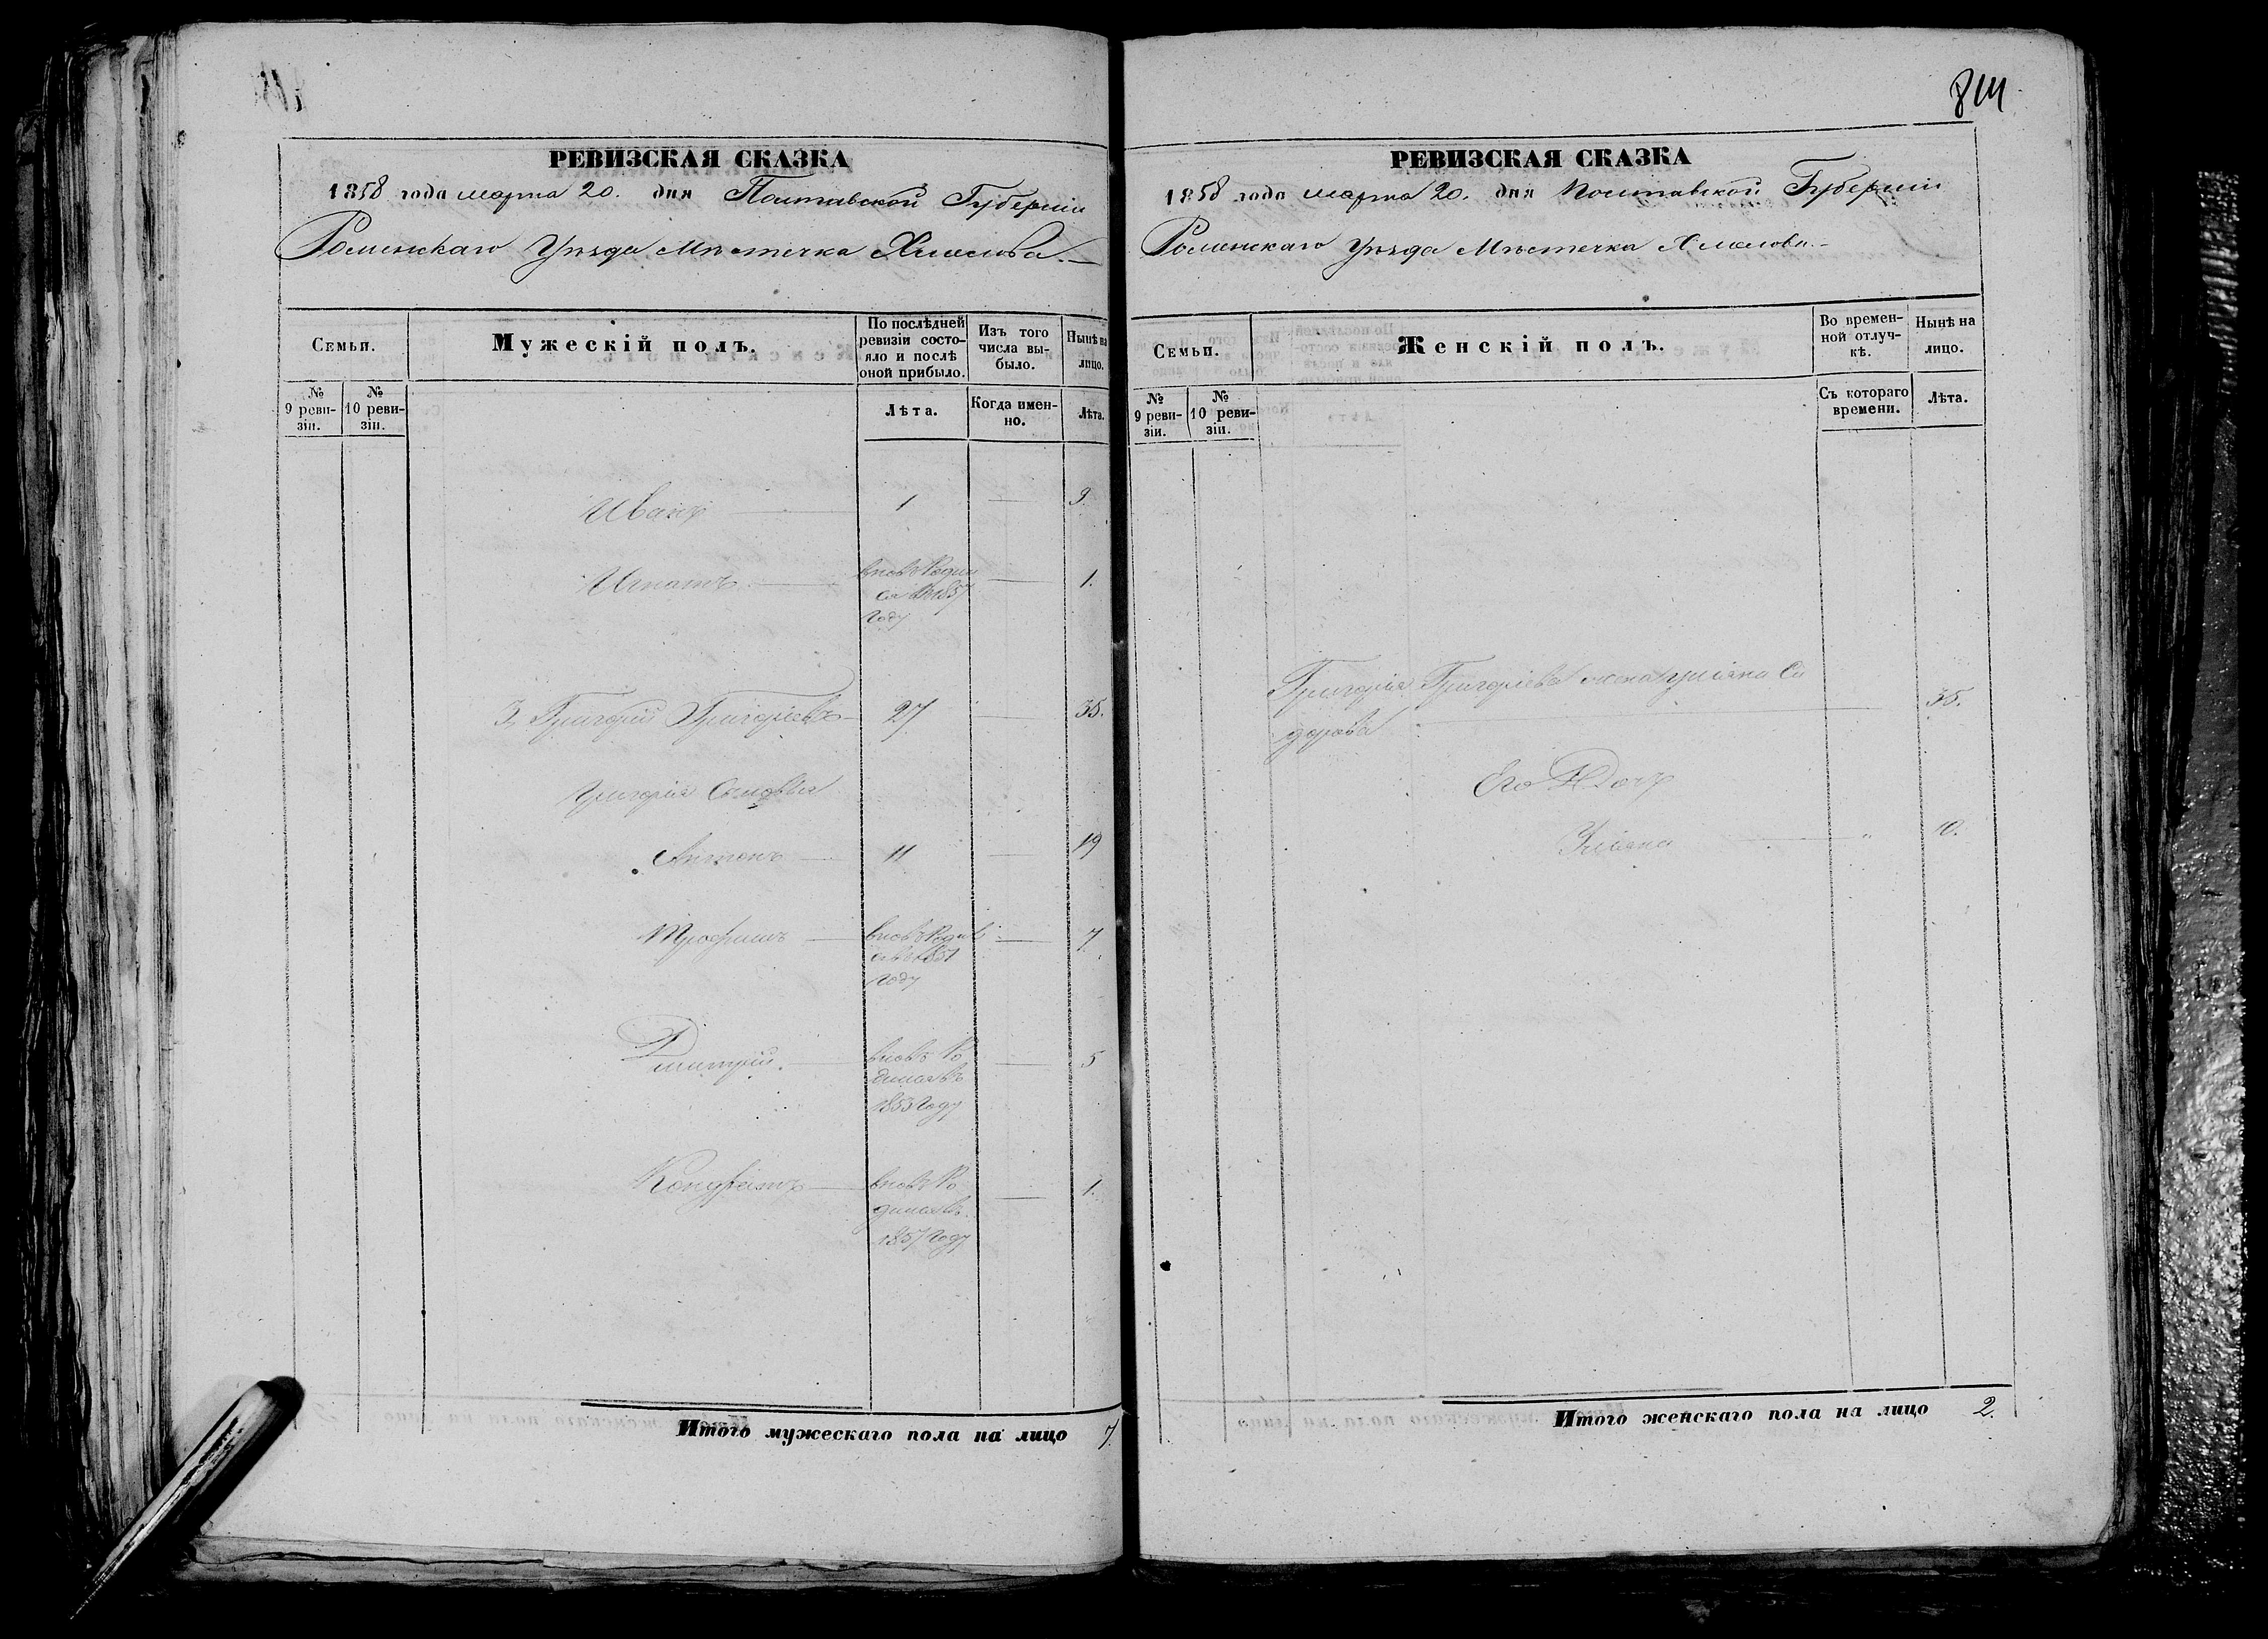 814
РЕВИЗСКАЯ СКАЗКА
1858 года марта 20. дня Полтавской Губерніи
Роменскаго Уѣзда Мѣстечка Хмелова.
Семьи.
Мужескій полъ.
По послѣдней ревизіи состояло и послѣ оной прибыло.
Изъ того числа выбыло.
Нынѣ на лицо.
№ 9 ревизіи.
№ 10 ревизіи.
Лѣта.
Когда именно.
Лѣта.
Иванъ 1 9.
Игнатъ вновь Роди
ся въ 1857 1.
году
3, Григорій Григорьевъ 27 35.
Григорія Сыновья
Антонъ 11 19
Трофимъ вновь Родил 7.
ся въ 1851
году
Дмитрій. вновь Ро 5
дился въ
1853 году
Кондратъ вновь Ро 1.
дился въ
1857 году
Итого мужескаго пола на лицо 7.
РЕВИЗСКАЯ СКАЗКА
1858 года марта 20. дня Полтавской Губерніи
Роменскаго Уѣзда Мѣстечка Хмелова.
Семьи.
Женскій полъ.
Во временной отлучкѣ.
Нынѣ на лицо.
№ 9 ревизіи.
№ 10 ревизіи.
Съ котораго времени.
Лѣта.
Григорія Григорьева жена Ульяна Си
дорова 35.
Его Дочь
Ульяна " 10.
Итого женскаго пола на лицо 2.